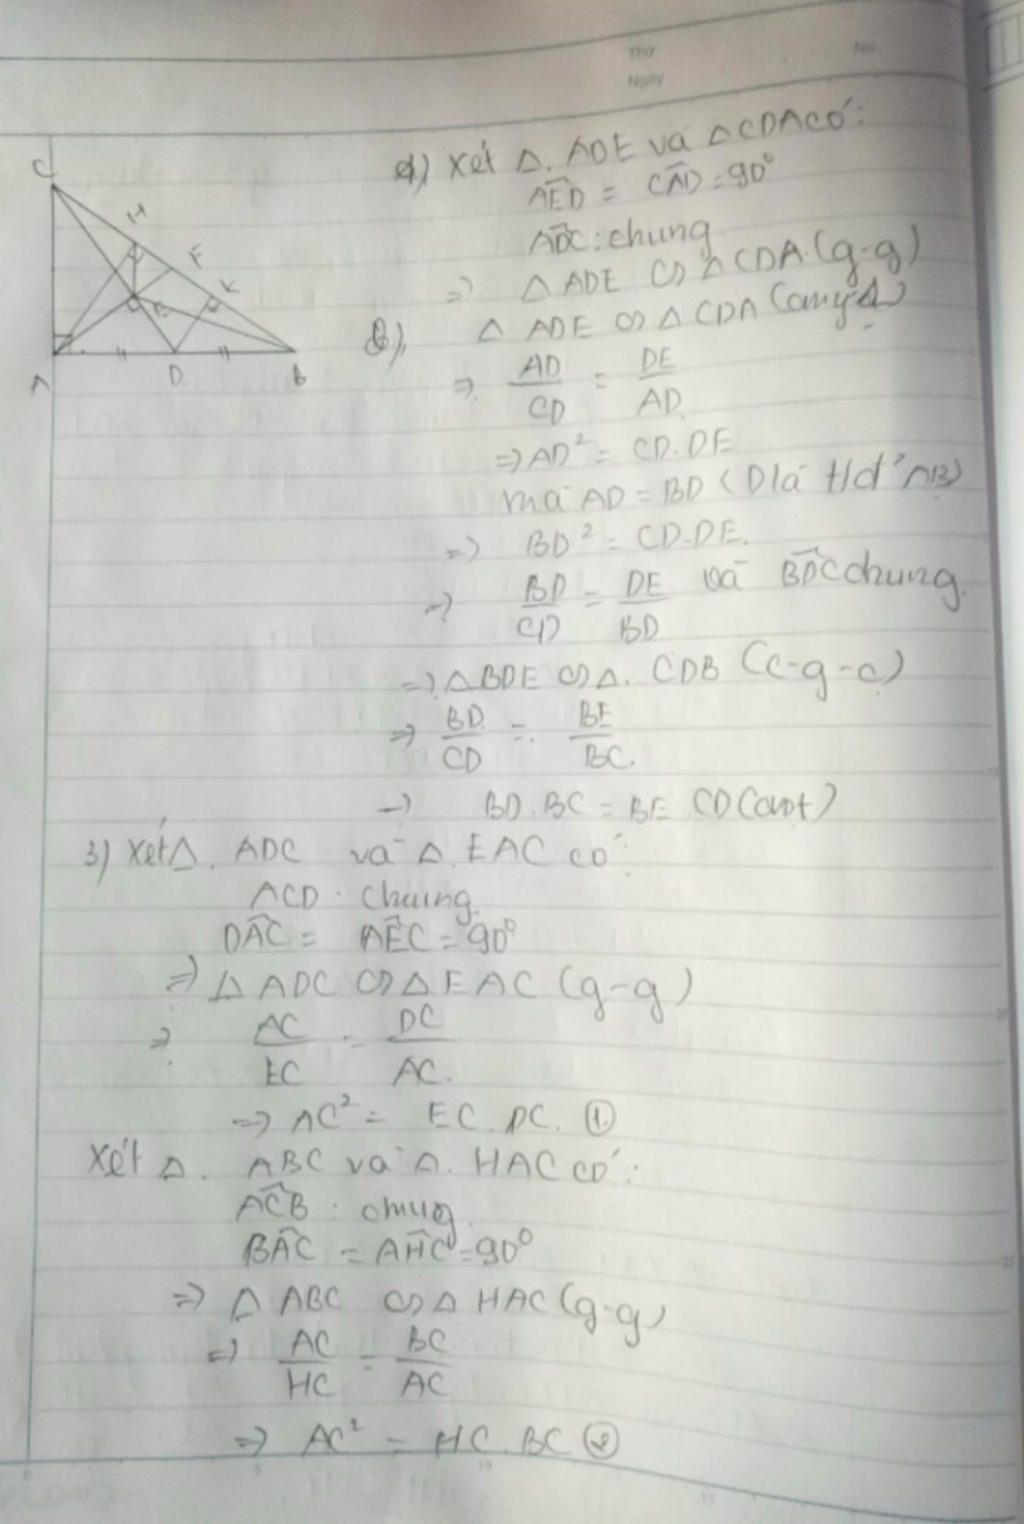 Thứ
No.
Ngày
C
H
F
K
E
A
D
B
a) Xét Δ. ADE và Δ CDA có:
AED = CAD = 90°
ADC: chung
=> Δ ADE ∽ Δ CDA (g-g)
b), Δ ADE ∽ Δ CDA (cmy a)
=> AD/CD = DE/AD
=> AD² = CD.DE
mà AD = BD (D là t/đ AB)
=> BD² = CD.DE.
=> BD/CD = DE/BD và BDC chung.
=> Δ BDE ∽ Δ. CDB (c-g-c)
=> BD/CD = BE/BC.
=> BD.BC = BE CD
3) Xét Δ. ADC và Δ. EAC có:
ACD: chung
DAC = AEC = 90°
=> Δ ADC ∽ Δ EAC (g-g)
=> AC/EC = DC/AC.
=> AC² = EC.DC. ①
Xét Δ. ABC và Δ. HAC có:
ACB: chung
BAC = AHC = 90°
=> Δ ABC ∽ Δ HAC (g-g)
=> AC/HC = BC/AC
=> AC² = HC.BC ②
0
5
10
15
25